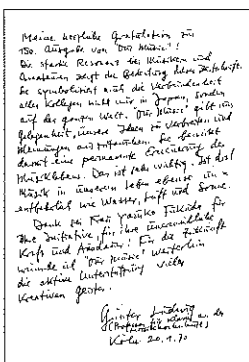 Meine herzliche Gratulation zur
150. Ausgabe von "Our Music"!
Die starke Resonanz bei Musikern und
Amateuren zeigt die Bedeutung dieser Zeitschrift.
Sie symbolisiert auch die Verbundenheit
aller Kollegen nicht nur in Japan, sondern
auf der ganzen Welt. "Our Music" gibt uns
Gelegenheit, unsere Ideen zu verbreiten und
Meinungen auszutauschen. Sie bewirkt
damit eine permanente Erneuerung des
Musiklebens. Das ist sehr wichtig. Ist doch
Musik in unserem Leben ebenso un-
entbehrlich wie Wasser, Luft und Sonne.
Dank sei Frau Yasuko Fukuda für
ihre Initiative, für ihre unermüdliche
Kraft und Ausdauer! Für die Zukunft
wünsche ich "Our Music" weiterhin
die aktive Unterstützung vieler
kreativen Geister.
Günter Ludwig
(Professor für Klavier an der
Musikhochschule)
Köln 20.1.90